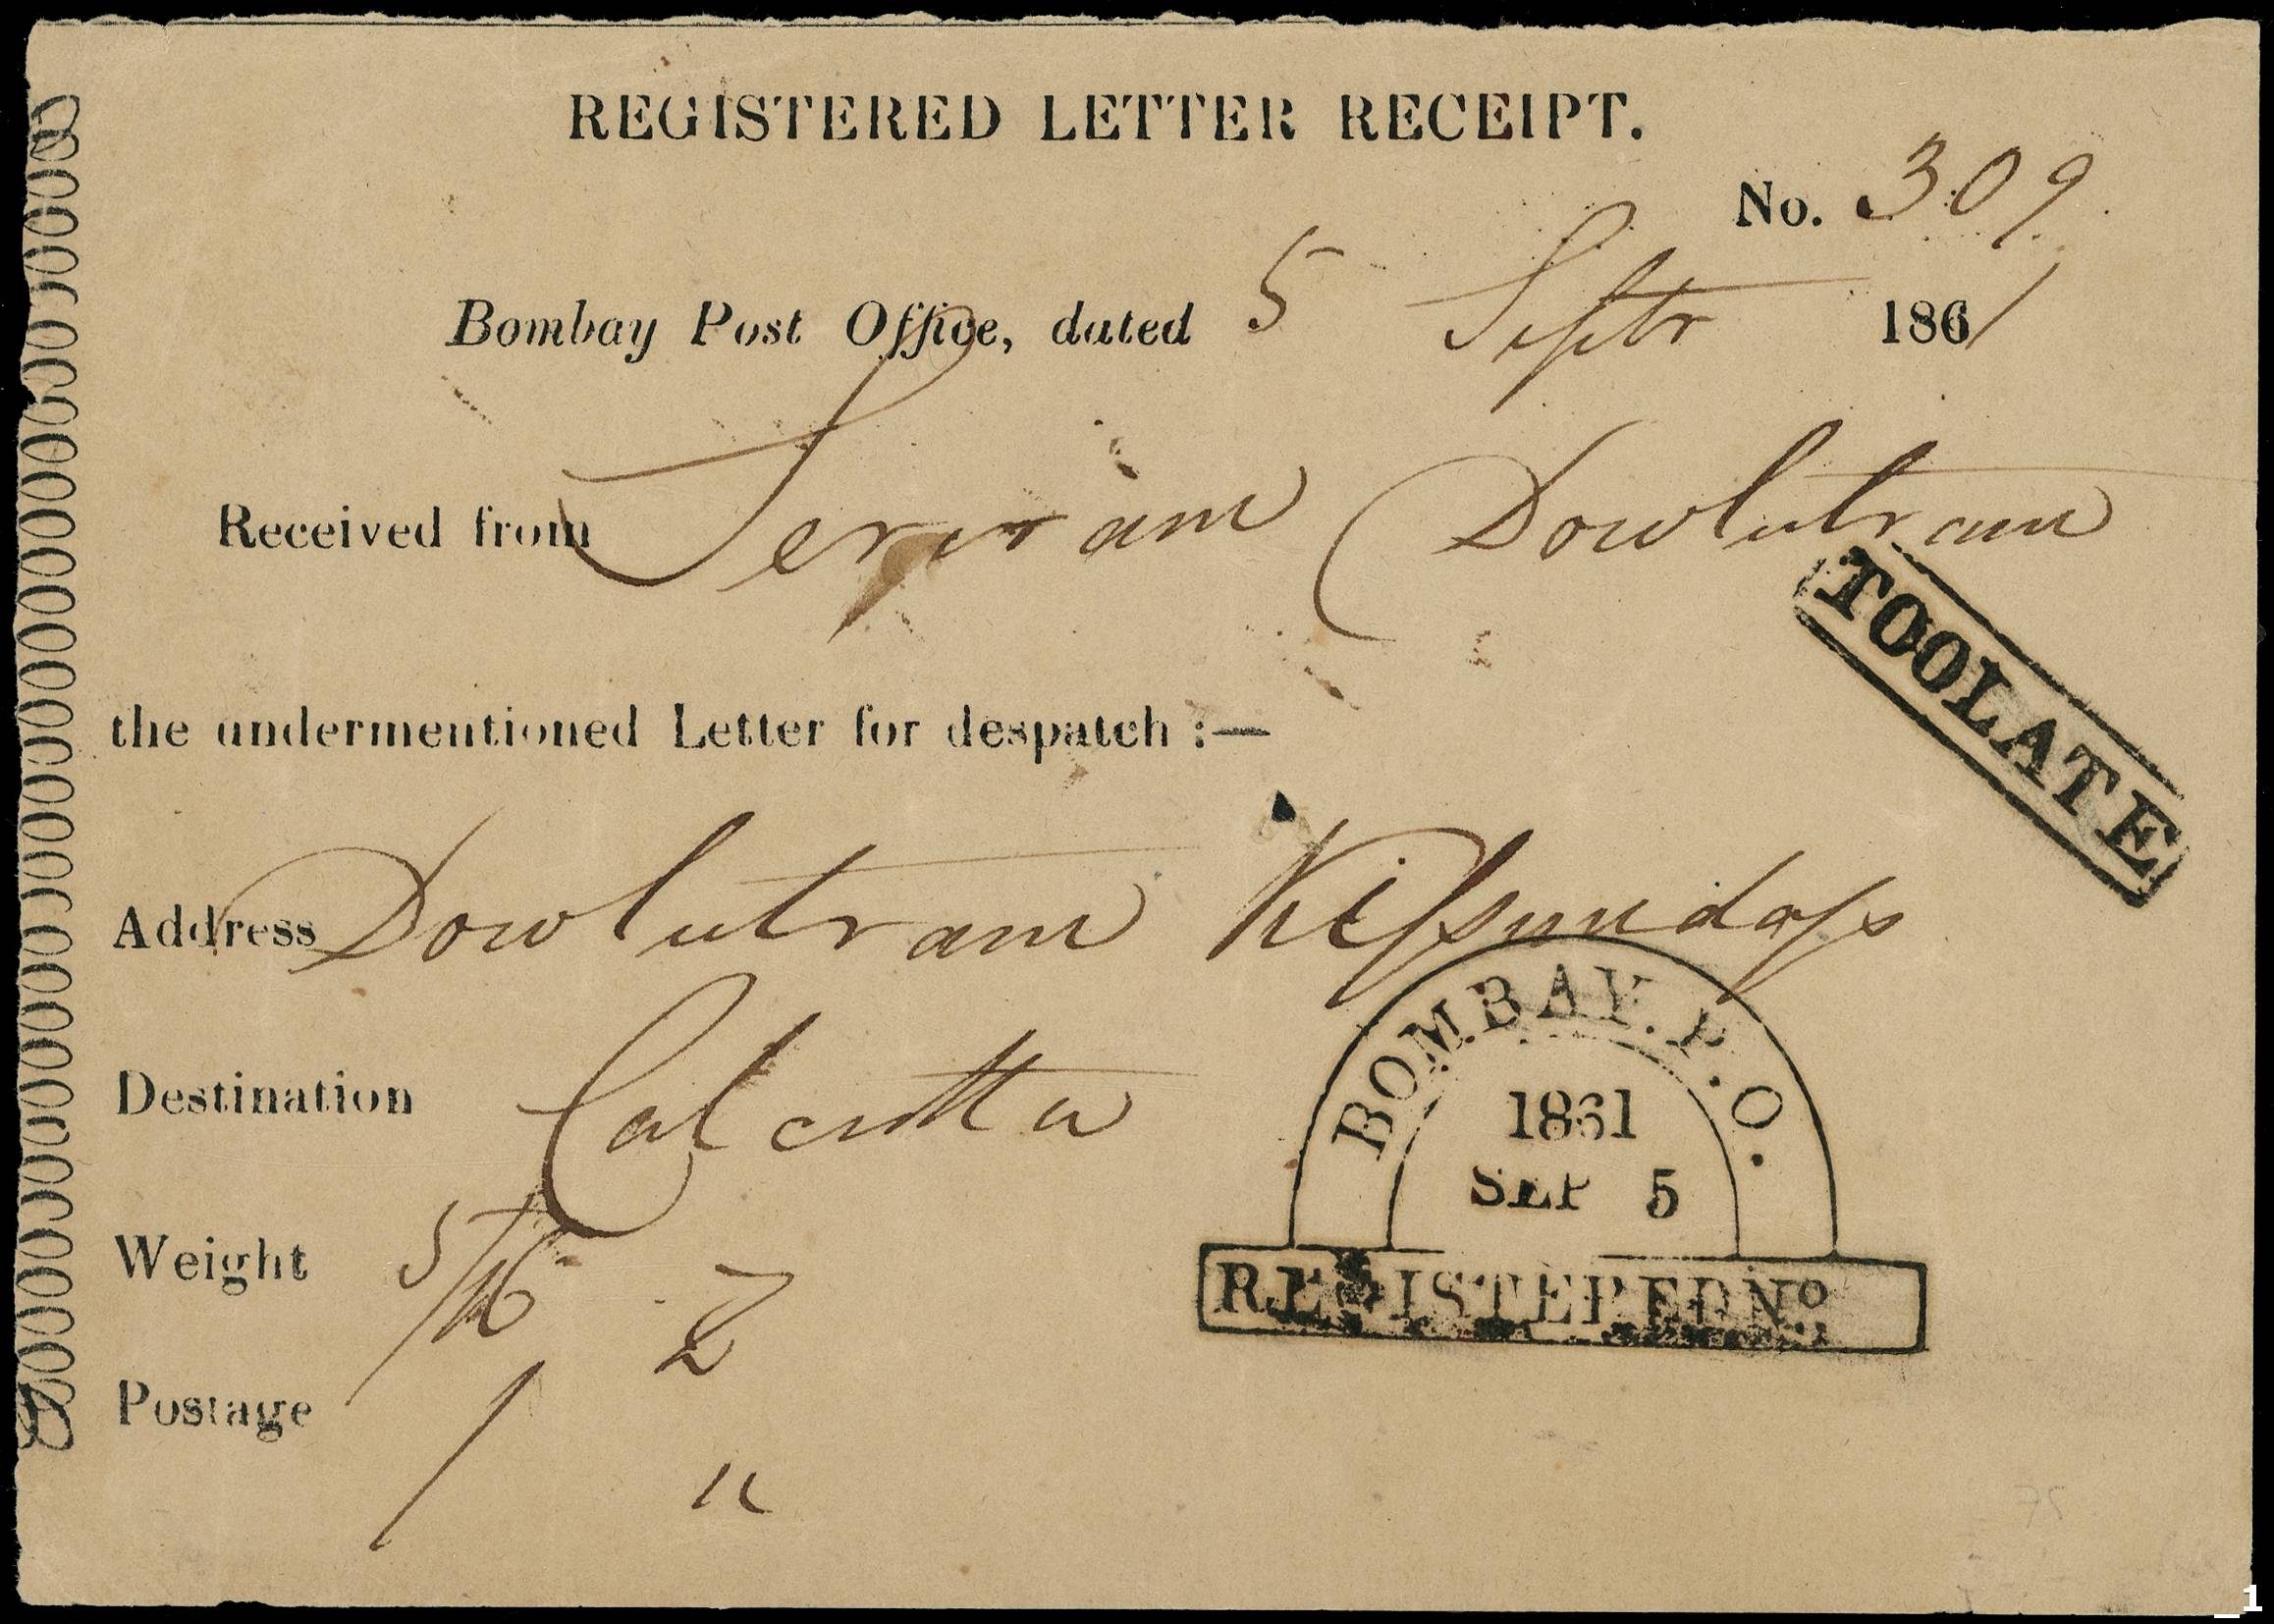 REGISTERED LETTER RECEIPT.
No. 309
Bombay Post Office, dated 5 Septr 1861
Received from Dowlutram
the undermentioned Letter for despatch :—
TOO LATE
Address Dowlutram Kissundass
Destination Calcutta
BOMBAY. P. O.
1861
SEP 5
REGISTERED No.
Weight 5/16
Postage 1 "
75
_1